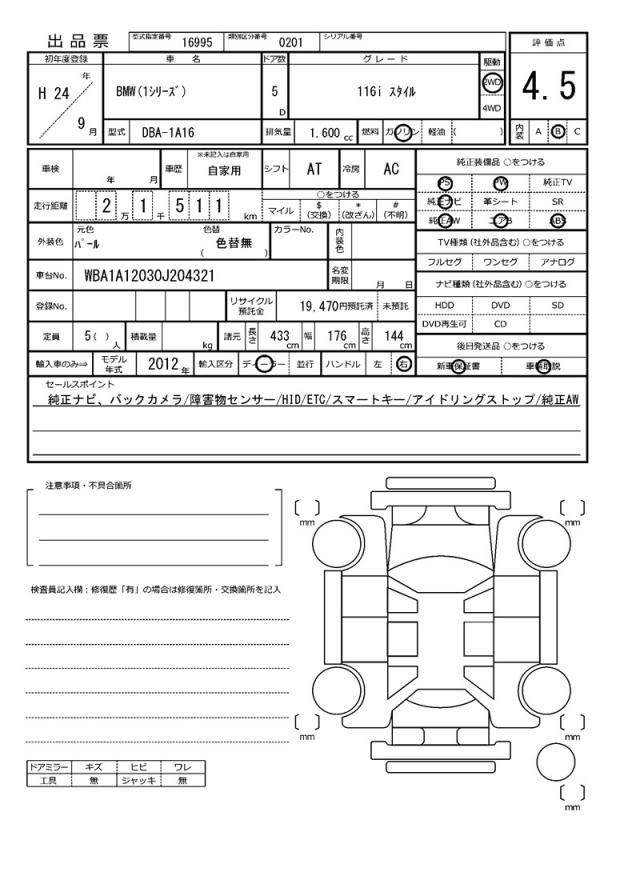 出品票 型式指定番号 16995 類別区分番号 0201 シリアル番号
評価点
初年度登録 車名 ドア数 グレード 駆動
H 24 年 9 月 BMW(1シリーズ) 5 D 116i スタイル 2WD 4WD 4.5
型式 DBA-1A16 排気量 1.600 cc 燃料 ガソリン 軽油 ( ) 内装 A B C
車検 年 月 車歴 ※未記入は自家用 自家用 シフト AT 冷房 AC
純正装備品 ○をつける
PS PW 純正TV
純正ナビ 革シート SR
純正AW エアB ABS
走行距離 2 万 1 千 5 1 1 km ○をつける
マイル $ (交換) * (改ざん) # (不明)
外装色 元色 パール 色替 ( 色替無 ) カラーNo. 内装色
TV種類(社外品含む)○をつける
フルセグ ワンセグ アナログ
車台No. WBA1A12030J204321 名変期限 月 日
ナビ種類(社外品含む)○をつける
HDD DVD SD
DVD再生可 CD
登録No. リサイクル預託金 19,470円預託済 未預託
定員 5( ) 人 積載量 kg 諸元 長さ 433 cm 幅 176 cm 高さ 144 cm
後日発送品 ○をつける
新車保証書 車輌取説
輸入車のみ⇒ モデル年式 2012 年 輸入区分 ディーラー 並行 ハンドル 左 右
セールスポイント
純正ナビ、バックカメラ/障害物センサー/HID/ETC/スマートキー/アイドリングストップ/純正AW
注意事項・不具合箇所
mm mm
検査員記入欄:修復歴「有」の場合は修復箇所・交換箇所を記入
mm mm
ドアミラー キズ ヒビ ワレ
工具 無 ジャッキ 無
mm